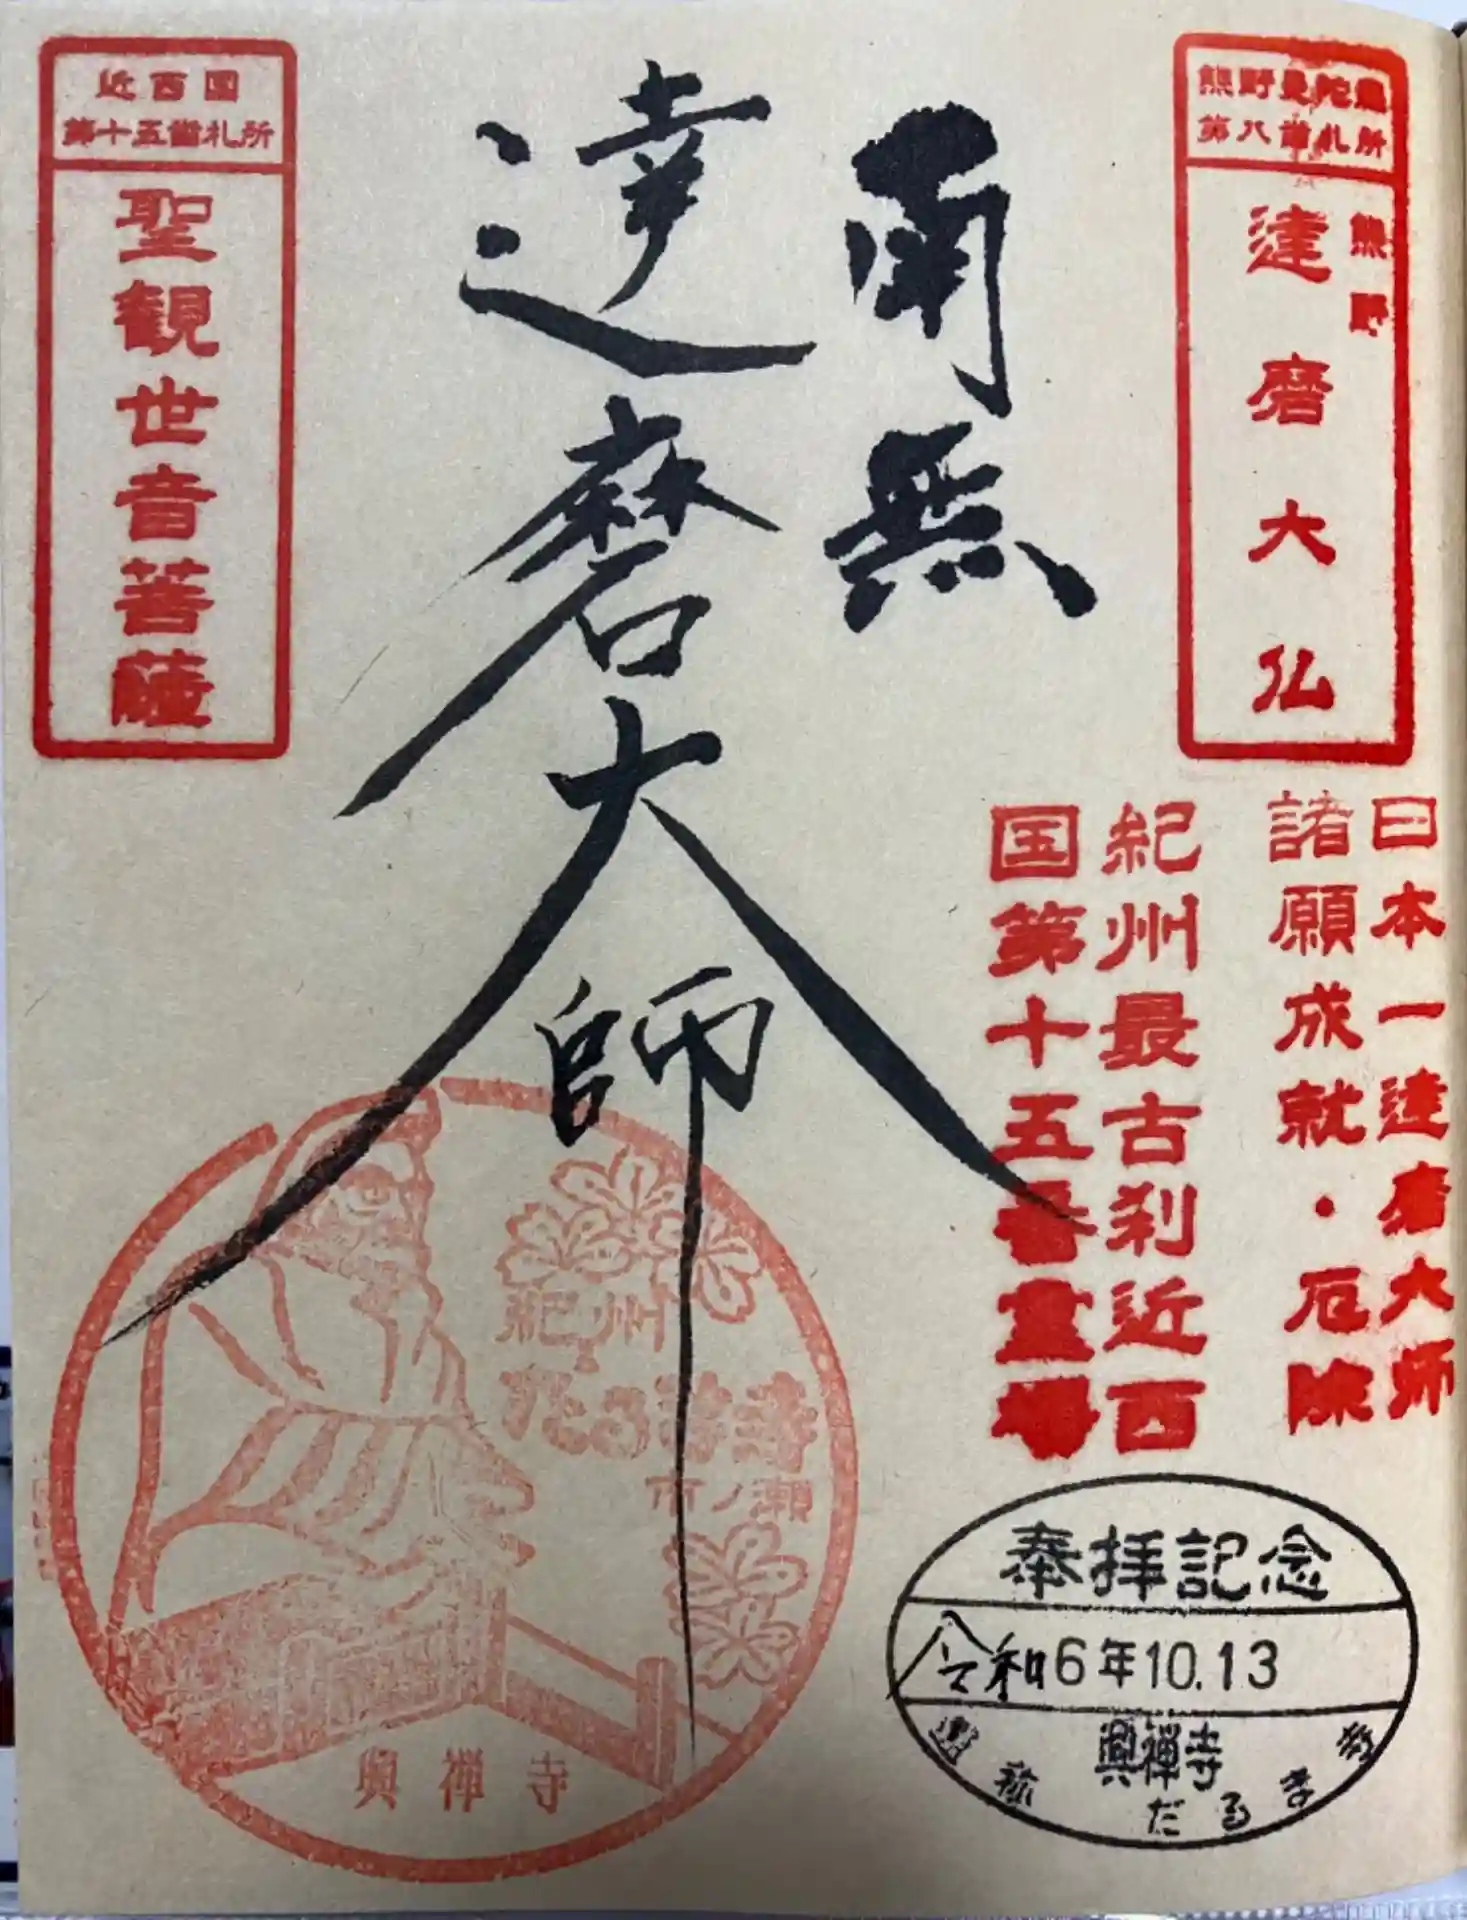 熊野曼陀羅
第八番札所
熊野
達磨大仏
日本一達磨大师
諸願成就・厄除
紀州最古刹近西
国第十五番霊場
南無
達磨大師
近西国
第十五番札所
聖観世音菩薩
紀州
だるま寺
市ノ瀬
興禅寺
奉拝記念
令和6年10.13
興禅寺
通称
だるま寺